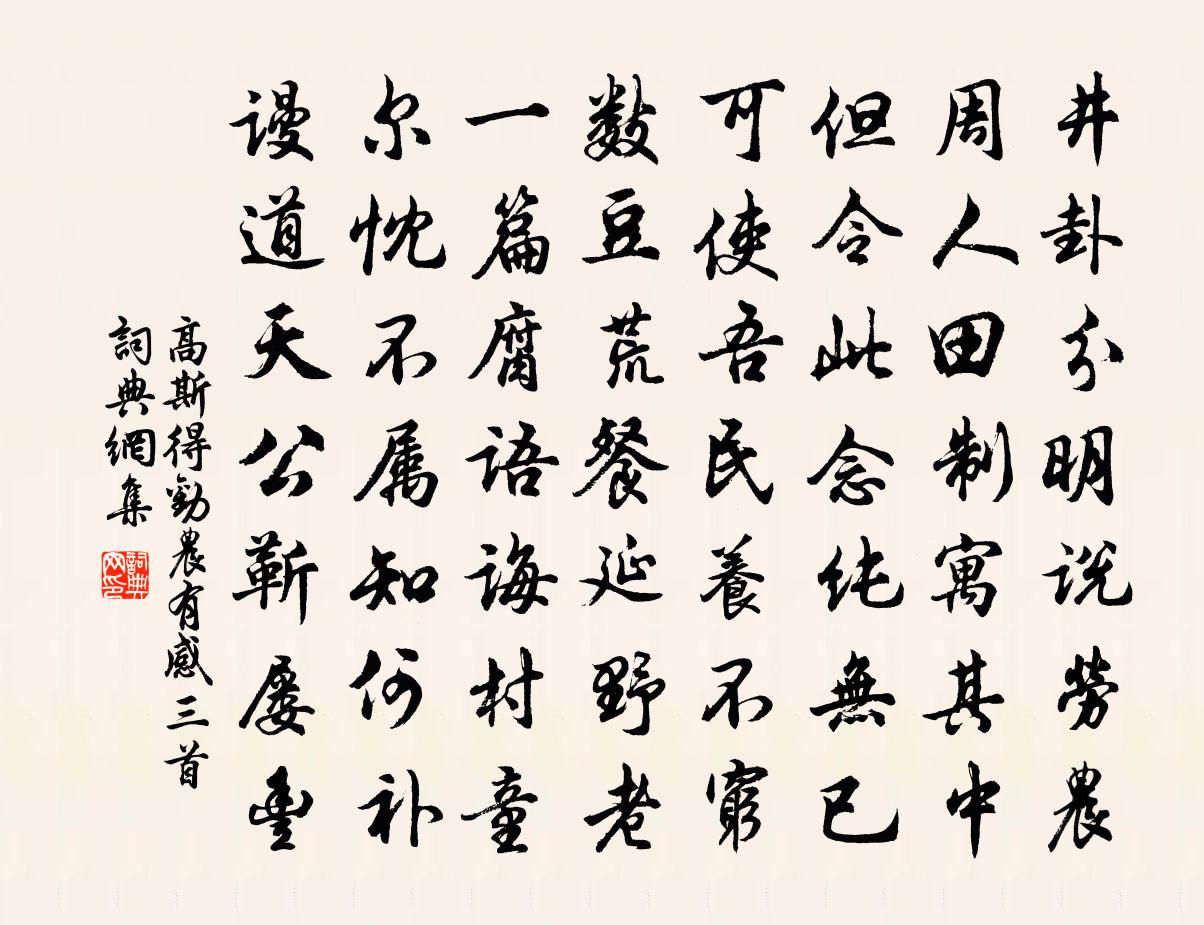 井卦分明说勞農
周人田制寓其中
但令此念纯無已
可使吾民養不窮
數豆荒餐延野老
一篇腐语诲村童
尔忱不属知何补
谩道天公靳屡豐
高斯得勸農有感三首
詞典網集
詞典